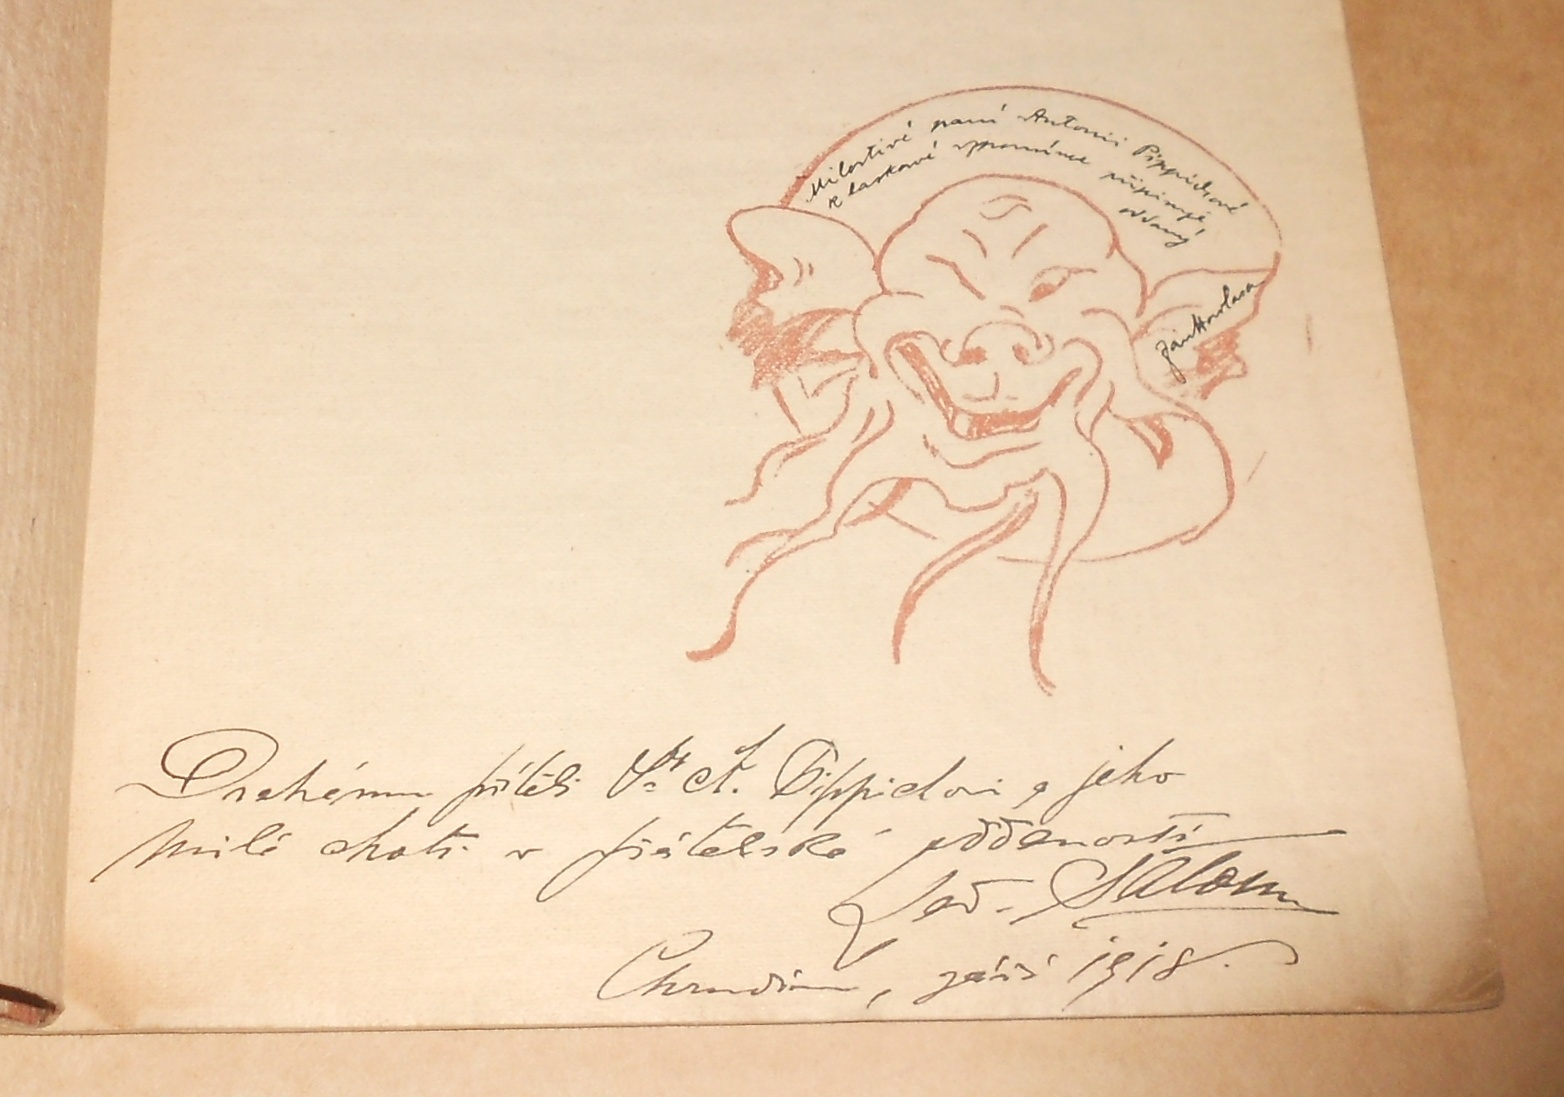 Milostivé paní Antonii Pippichové
k laskavé vzpomínce připisuje
oddaný
Jan Havlasa
Drahému příteli Dru A. Pippichovi a jeho
milé choti v přátelské oddanosti
Lad. Šalom
Chrudim, září 1918.